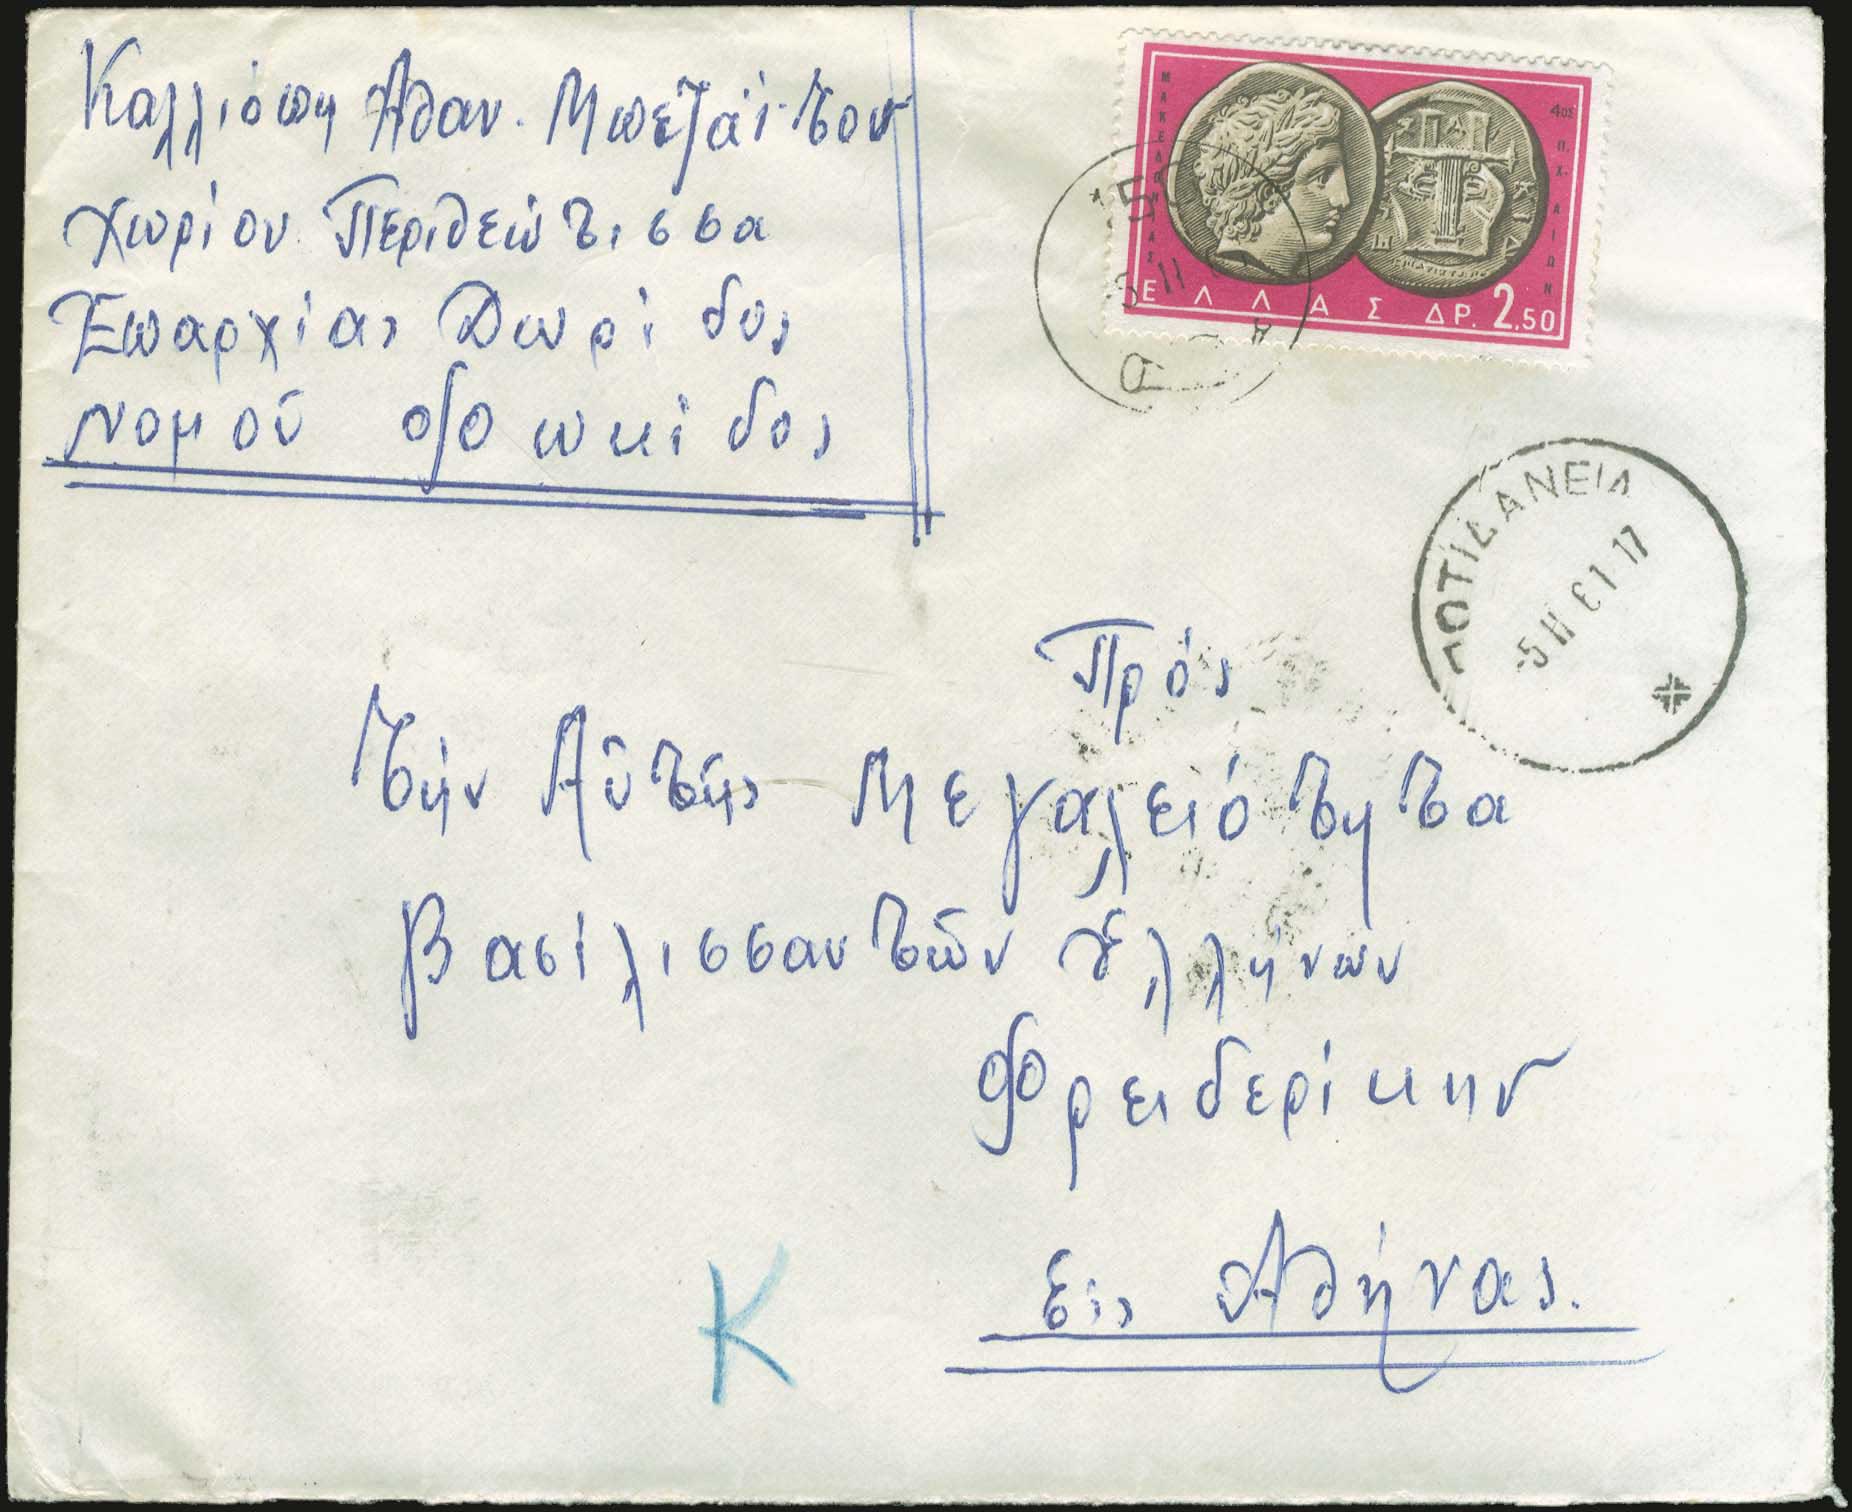 Καλλιόπη Αθαν. Μπεζαΐτου
Χωρίον Περιθεώτισσα
Επαρχίας Δωρίδος
Νομού Φωκίδος
ΜΑΚΕΔΟΝΙΑΣ
4ος Π.Χ. ΑΙΩΝ
ΕΛΛΑΣ ΔΡ. 2.50
150
ΠΟΤΙΔΑΝΕΙΑ
-5 ΙΙ 61 17
Πρός
τήν Αὐτῆς Μεγαλειότητα
Βασίλισσαν τῶν Ἑλλήνων
Φρειδερίκην
Εἰς Ἀθήνας.
Κ